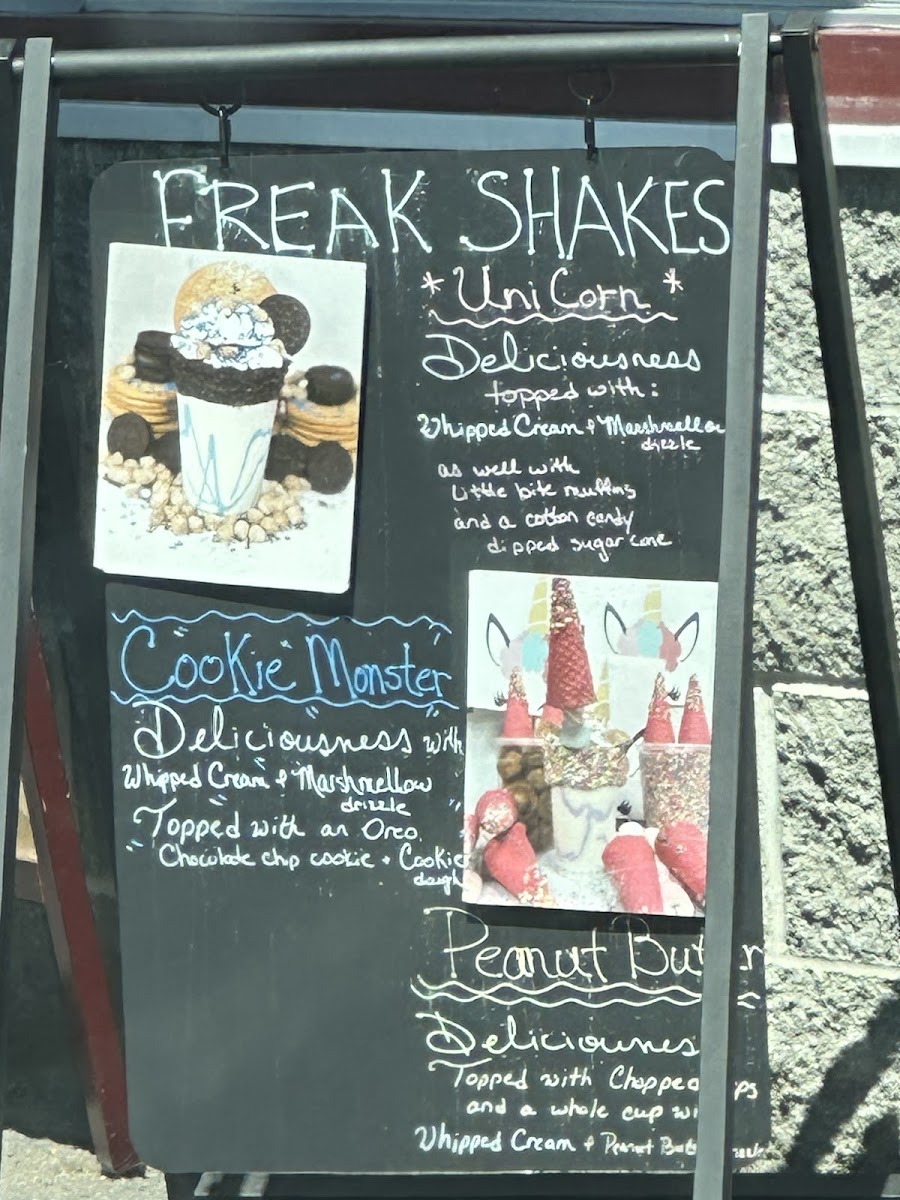 FREAK SHAKES
* UniCorn *
Deliciousness
topped with:
Whipped Cream & Marshmellow
drizzle
as well with
little bite muffins
and a cotton candy
dipped sugar cone
CooKie Monster
Deliciousness with
Whipped Cream & Marshmellow
drizzle
Topped with an Oreo,
Chocolate chip cookie + Cookie
dough
Peanut But
Deliciousnes
Topped with Chopped
and a whole cup
Whipped Cream & Peanut